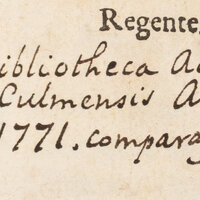 Regente
ibliotheca Ac
Culmensis A
1771. compara